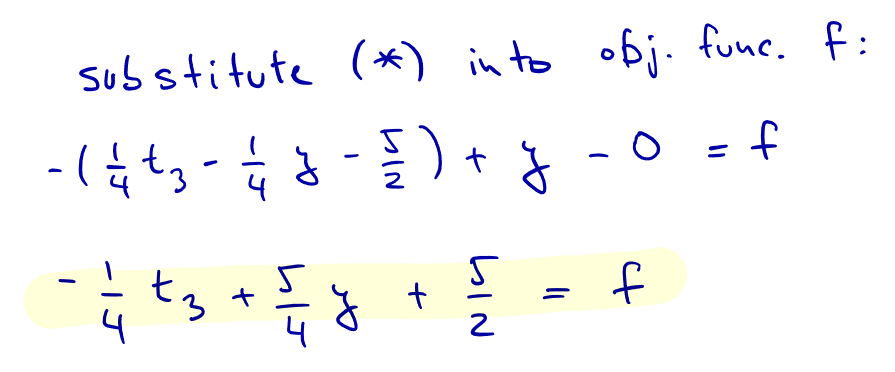 substitute (*) into obj. func. f:
-(1/4 t₃ - 1/4 y - 5/2) + y - 0 = f
-1/4 t₃ + 5/4 y + 5/2 = f